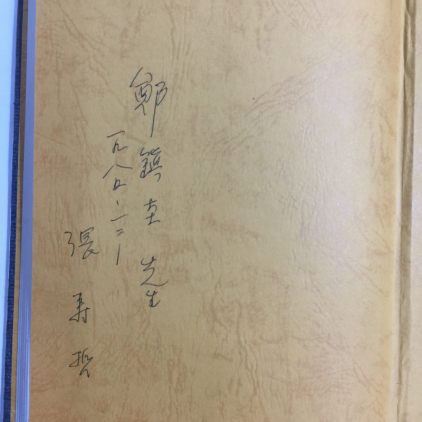 鄭鎮 先生
一九八〇・一二・一
張寿哲